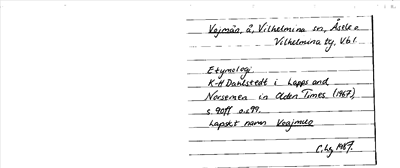 Vojmån, å, Vilhelmina sn, Åsele o
Vilhelmina tg, Vb l.
Etymologi
K-H Dahlstedt i Lapps and
Norsemen in Olden Times (1967),
s. 90ff o. 99.
Lapskt namn
C. Lg 1987.